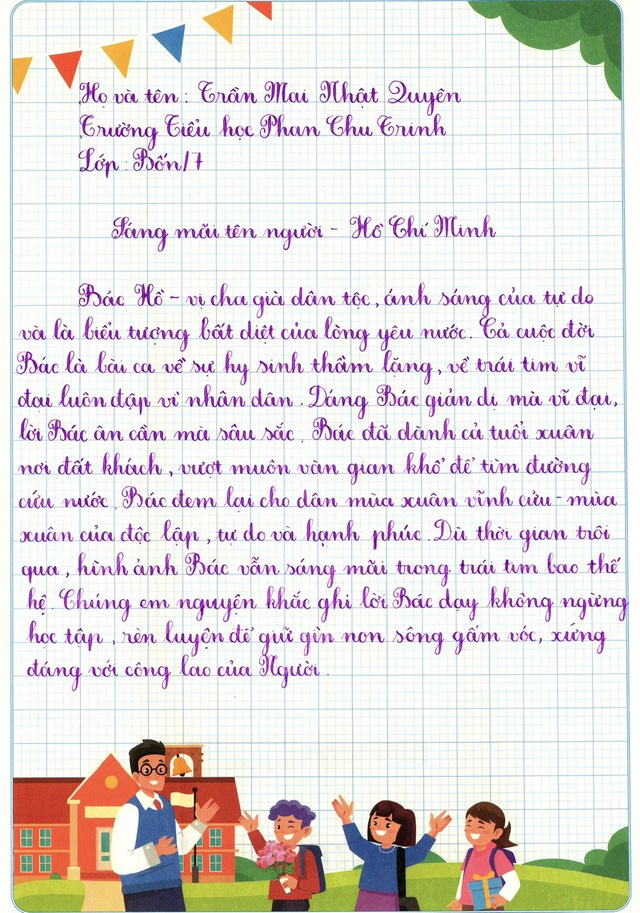 Họ và tên : Trần Mai Nhật Quyên
Trường Tiểu học Phan Chu Trinh
Lớp : Bốn/7
Sáng mãi tên người - Hồ Chí Minh
Bác Hồ - vị cha già dân tộc, ánh sáng của tự do
và là biểu tượng bất diệt của lòng yêu nước. Cả cuộc đời
Bác là bài ca về sự hy sinh thầm lặng, về trái tim vĩ
đại luôn đập vì nhân dân. Dáng Bác giản dị mà vĩ đại,
lời Bác ân cần mà sâu sắc. Bác đã dành cả tuổi xuân
nơi đất khách, vượt muôn vàn gian khổ để tìm đường
cứu nước. Bác đem lại cho dân mùa xuân vĩnh cửu - mùa
xuân của độc lập, tự do và hạnh phúc. Dù thời gian trôi
qua, hình ảnh Bác vẫn sáng mãi trong trái tim bao thế
hệ. Chúng em nguyện khắc ghi lời Bác dạy không ngừng
học tập, rèn luyện để giữ gìn non sông gấm vóc, xứng
đáng với công lao của Người.